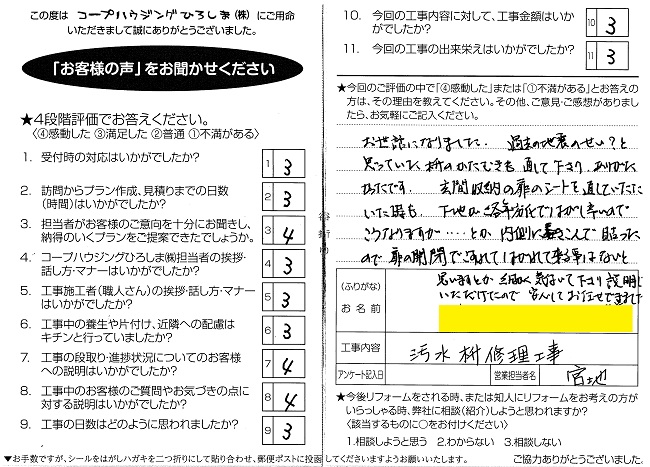 この度は コープハウジングひろしま(株) にご用命
いただきまして誠にありがとうございました。
「お客様の声」をお聞かせください
★4段階評価でお答えください。
〈④感動した ③満足した ②普通 ①不満がある〉
1. 受付時の対応はいかがでしたか? 1 3
2. 訪問からプラン作成、見積りまでの日数
(時間)はいかがでしたか? 2 3
3. 担当者がお客様のご意向を十分にお聞きし、
納得のいくプランをご提案できたでしょうか。 3 4
4. コープハウジングひろしま㈱担当者の挨拶・
話し方・マナーはいかがでしたか? 4 3
5. 工事施工者(職人さん)の挨拶・話し方・マナー
はいかがでしたか? 5 3
6. 工事中の養生や片付け、近隣への配慮は
キチンと行っていましたか? 6 3
7. 工事の段取り・進捗状況についてのお客様
への説明はいかがでしたか? 7 4
8. 工事中のお客様のご質問やお気づきの点に
対する説明はいかがでしたか? 8 4
9. 工事の日数はどのように思われましたか? 9 3
10. 今回の工事内容に対して、工事金額はいか
がでしたか? 10 3
11. 今回の工事の出来栄えはいかがでしたか? 11 3
★今回のご評価の中で「④感動した」または「①不満がある」とお答え
の方は、その理由を教えてください。その他、ご意見・ご感想がありまし
たら、お気軽にご記入ください。
お世話になりました. 過去の地震のせい?と
思っていた枡のかたむきも直して下さり ありがた
かったです. 玄関収納の扉のシートを直していただ
いた時も. 下地が経年劣化ではがし辛いので
こうなりますが……とか 内側に巻きこんで貼った
ので 扉の開閉でこすれてはがれて来る事はないと
思いますとか 細かく気づいて下さり 説明し
いただけたので 安心してお任せできました
(ふりがな)
お名前
工事内容 汚水枡修理工事
アンケート記入日 営業担当者名 宮地
★今後リフォームをされる時、または知人にリフォームをお考えの方が
いらっしゃる時、弊社に相談(紹介)しようと思われますか?
〈該当するものに○をお付けください〉
1.相談しようと思う 2.わからない 3.相談しない
▼お手数ですが、シールをはがしハガキを二つ折りにして貼り合わせ、郵便ポストに投函してくださいますようお願いいたします。 ご協力ありがとうございました。